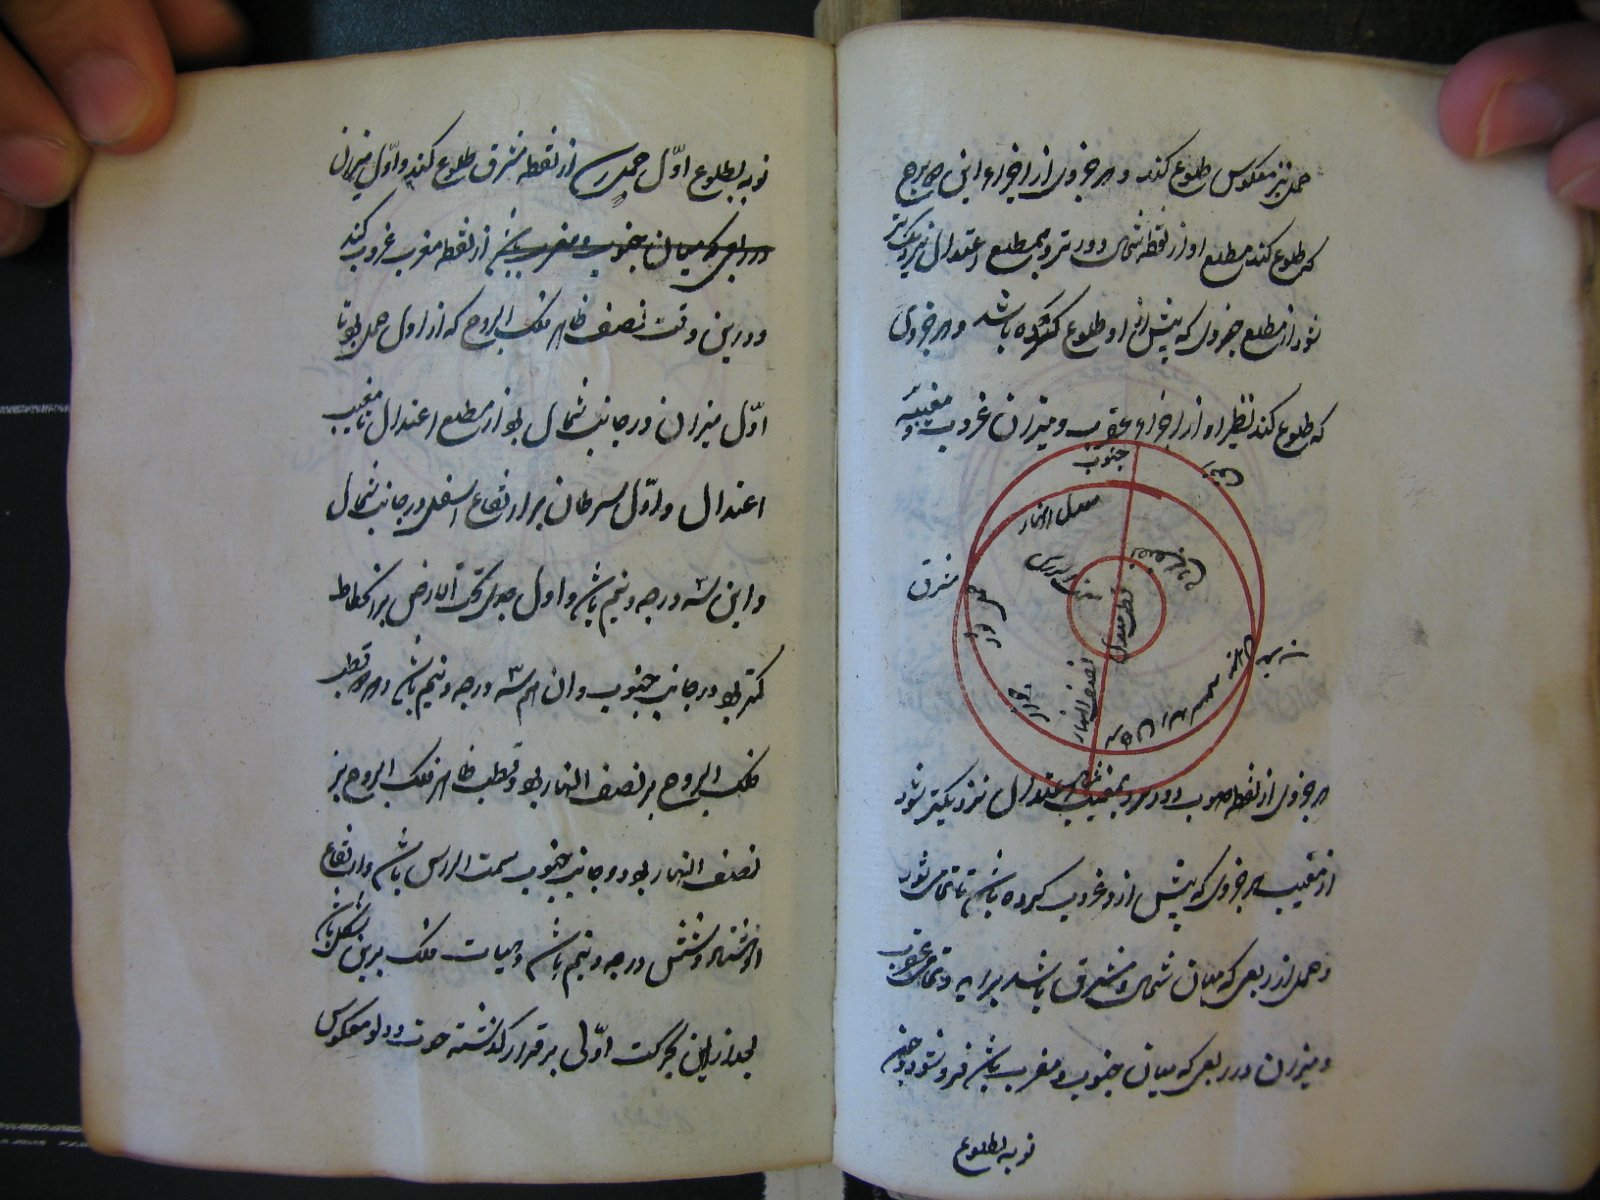 حمل نیز معکوس طلوع کند و هر جزوی از اجزاء این برج
که طلوع کند مطلع او از نقطه شمال دورتر و بمطلع اعتدال نزدیکتر
شود از مطلع جزوی که پیش از او طلوع کرده باشد و هر جزوی
که طلوع کند نظیر او از اجزاء عقرب و میزان غروب و مغیب
جنوب
معدل النهار
مشرق
قطب معدل
نصف النهار
هر جزوی از نقطه جنوب دورتر و بمغیب اعتدال نزدیکتر شود
از مغیب هر جزوی که پیش از و غروب کرده باشد تا تمامی ثور
و حمل از ربعی که میان شمال و مشرق باشد برآید و تمامی عقرب
و میزان در ربعی که میان جنوب و مغرب باشد فرو شود و چون
نوبه بطلوع
نوبه بطلوع اوّل حمل رسد از نقطه مشرق طلوع کند و اوّل میزان
در ربعی که میان جنوب و مغرب باشد از نقطه مغرب غروب کند
و درین وقت نصف ظاهر فلک البروج که از اول حمل بود تا
اوّل میزان در جانب شمال بود از مطلع اعتدال تا مغیب
اعتدال و اوّل سرطان بر ارتفاع اسفل در جانب شمال
و این سه درجه و نیم باشد و اول جدی تحت الارض بر انحطاط
کمتر بود در جانب جنوب و ان هم سه درجه و نیم باشد و هر دو قطب
فلک البروج بر نصف النهار بود و قطب ظاهر فلک البروج بر
نصف النهار بود در جانب جنوب سمت الراس باشد و ارتفاع
او هشتاد و شش درجه و نیم باشد و هیات فلک برین شکل باشد
بعد ازین بحرکت اوّلی بر قرار گذشته حوت و دلو معکوس